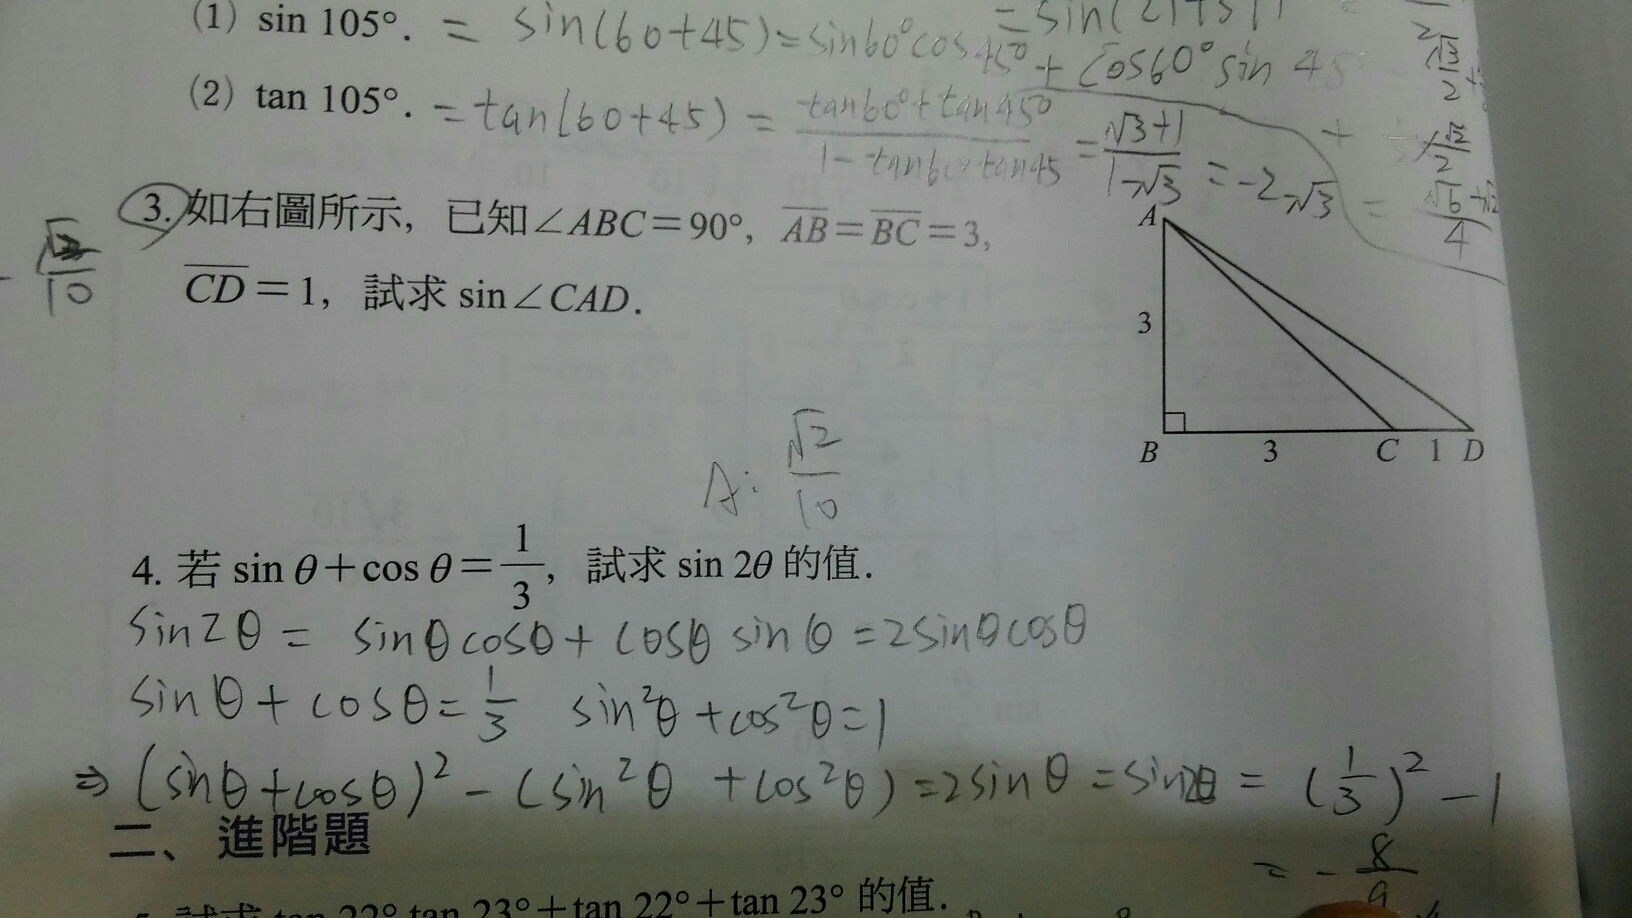 (1) sin 105°. = sin(60+45)=sin60°cos45°+cos60°sin 45
(2) tan 105°. = tan(60+45) = tan60°+tan45° / 1-tan60×tan45 = √3+1 / 1-√3 = -2-√3 = √6+√2 / 4
3. 如右圖所示, 已知∠ABC=90°, AB=BC=3,
CD=1, 試求 sin∠CAD.
A
3
B 3 C 1 D
A: √2/10
4. 若 sin θ+cos θ=1/3, 試求 sin 2θ 的值.
sin2θ = sinθcosθ+cosθ sinθ =2sinθcosθ
sinθ+cosθ=1/3 sin²θ+cos²θ=1
⇒ (sinθ+cosθ)²-(sin²θ +cos²θ)=2sinθ =sin2θ = (1/3)²-1
= - 8/9
二、進階題
tan 22° tan 23°+tan 22°+tan 23° 的值.